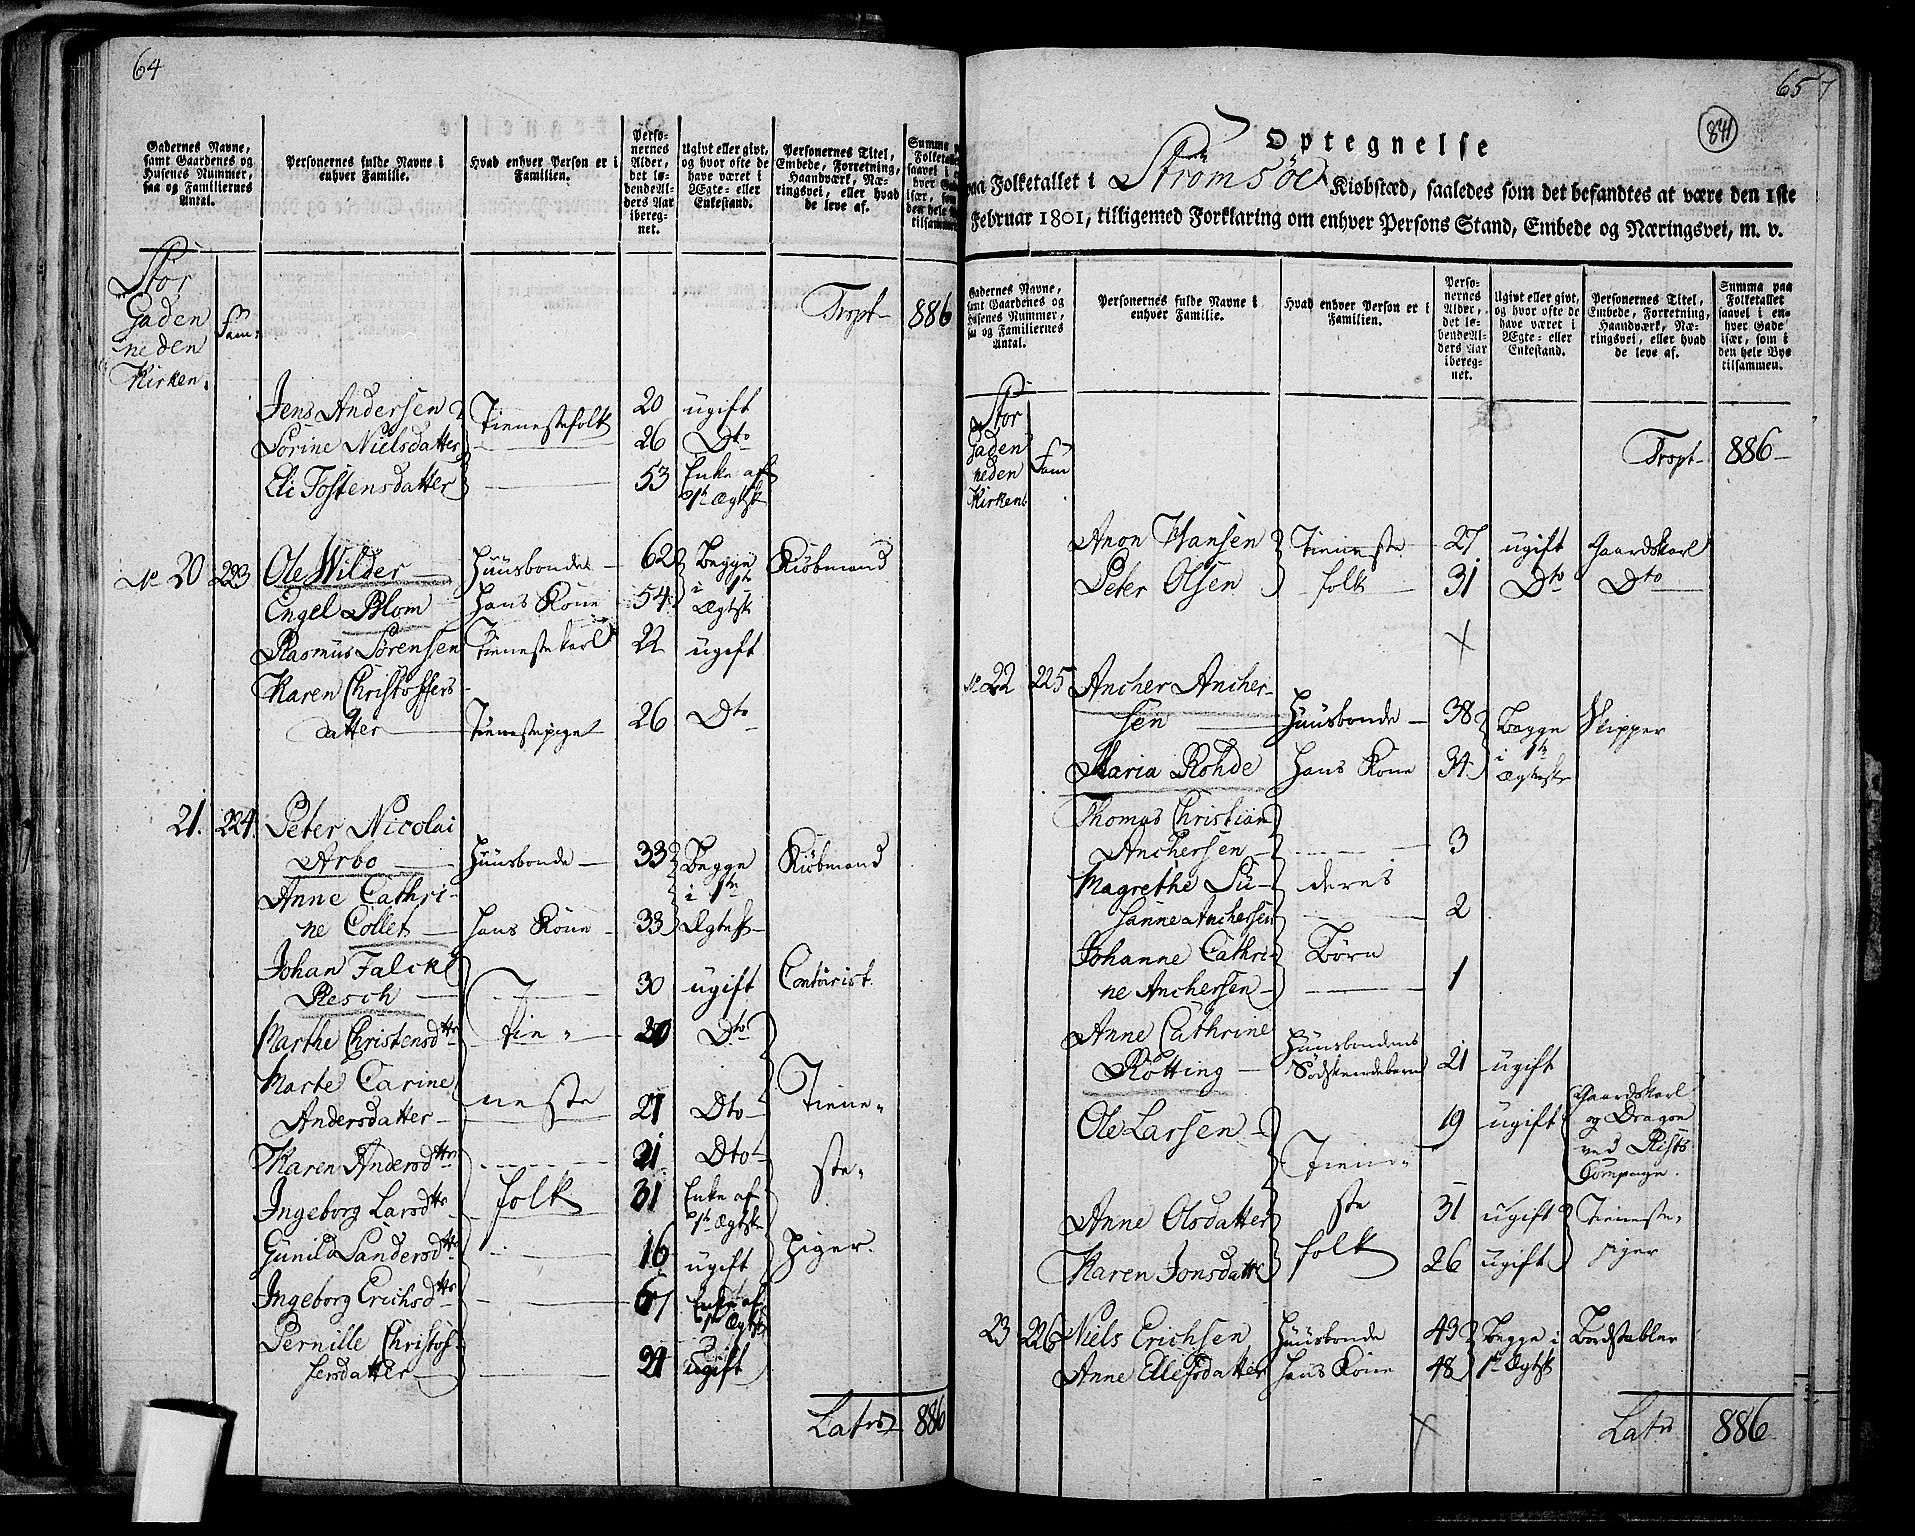 64
Gadernes Navne,
samt Gaardenes og
Husenes Nummer,
saa og Familiernes
Antal.
Personernes fulde Navne i
enhver Familie.
Hvad enhver Person er i
Familien.
Perso-
nernes
Alder,
det lø-
bende Al-
ders Aar
ibereg-
net.
Ugivt eller givt,
og hvor ofte de
have været i
Ægte- eller
Enkestand.
Personernes Titel,
Embede, Forretning,
Haandværk, Næ-
ringsvei, eller hvad
de leve af.
Summa pa
Folketallet
saavel i e
hver Gad
især, som
den hele
tilsamme
Stor
Gaden
neden
Kirken.
Fam:
Trspt 886
Jens Andersen Tienestefolk 20 ugift
Sørine Nielsdatter 26 Dto
Eli Tostensdatter 53 Enke af
1ste Ægtsk
No 20 223 Ole Wilder Huusbonde 62 Begge Kiöbmand
i 1ste
Engel Blom Hans Kone 54 Ægtsk
Rasmus Sörensen Tienestekarl 22 ugift
Karen Christoffers
datter Tienestepiget 26 Dto
21. 224. Peter Nicolai
Arbo Huusbonde 33 Begge Kiöbmand
i 1ste
Anne Cathri-
ne Collet Hans Kone 33 Ægtesk
Johan Falck
Resch 30 ugift Contoirist.
Marthe Christensdttr tie 20 Dto
Marte Carine
Andersdatter neste 27 Dto Tiene-
Karen Andersdttr 21 Dto
ste-
Ingeborg Larsdttr folk 31 Enke af
1ste Ægtsk
Gunild Sandersdttr 16 ugift piger.
Ingeborg Erichsdttr 67 Enke af
1ste Ægtsk
Pernille Christof-
fersdatter 21 ugift
Latus 886
65
841
Optegnelse
paa Folketallet i Strömsöe Kiøbstæd, saaledes som det befandtes at være den 1ste
Februar 1801, tilligemed Forklaring om enhver Persons Stand, Embede og Næringsvei, m. v.
Gadernes Navne,
samt Gaardenes og
Husenes Nummer,
saa og Familiernes
Antal.
Personernes fulde Navne i
enhver Familie.
Hvad enhver Person er i
Familien.
Perso-
nernes
Alder,
det lø-
bende Al-
ders Aar
ibereg-
net.
Ugivt eller givt,
og hvor ofte de
have været i
Ægte- eller
Enkestand.
Personernes Titel,
Embede, Forretning,
Haandværk, Næ-
ringsvei, eller hvad
de leve af.
Summa paa
Folketallet
saavel i en-
hver Gade
især, som i
den hele Bye
tilsammen.
Stor
Gaden
neden
Kirken.
Fam
Trspt 886
Anon Hansen Tieneste 27 ugift Gaardskarl
Peter Olsen folk 31 Dto Dto
No 22 225 Ancher Ancher-
sen Huusbonde 38 Begge Skipper
i 1ste
Maria Rohde Hans Kone 34 Ægtesk
Thomas Christian
Anchersen 3
Magrethe Su- deres
sanne Anchersen 2
Johanne Cathri- Börn
ne Anchersen 1
Anne Cathrine Huusbondens
Rötting Södskendebarn 21 ugift
Ole Larsen 19 ugift Gaardskarl
og Dragon
ved Rists
Compagnie.
Tiene-
Anne Olsdatter ste 31 ugift Tieneste-
Karen Jonsdatter folk 26 ugift piger
23 226 Niels Erichsen Huusbonde 43 Begge i Bordstabler
Anne Ellefsdatter Hans Kone 48 1ste Ægtsk
Latus 886